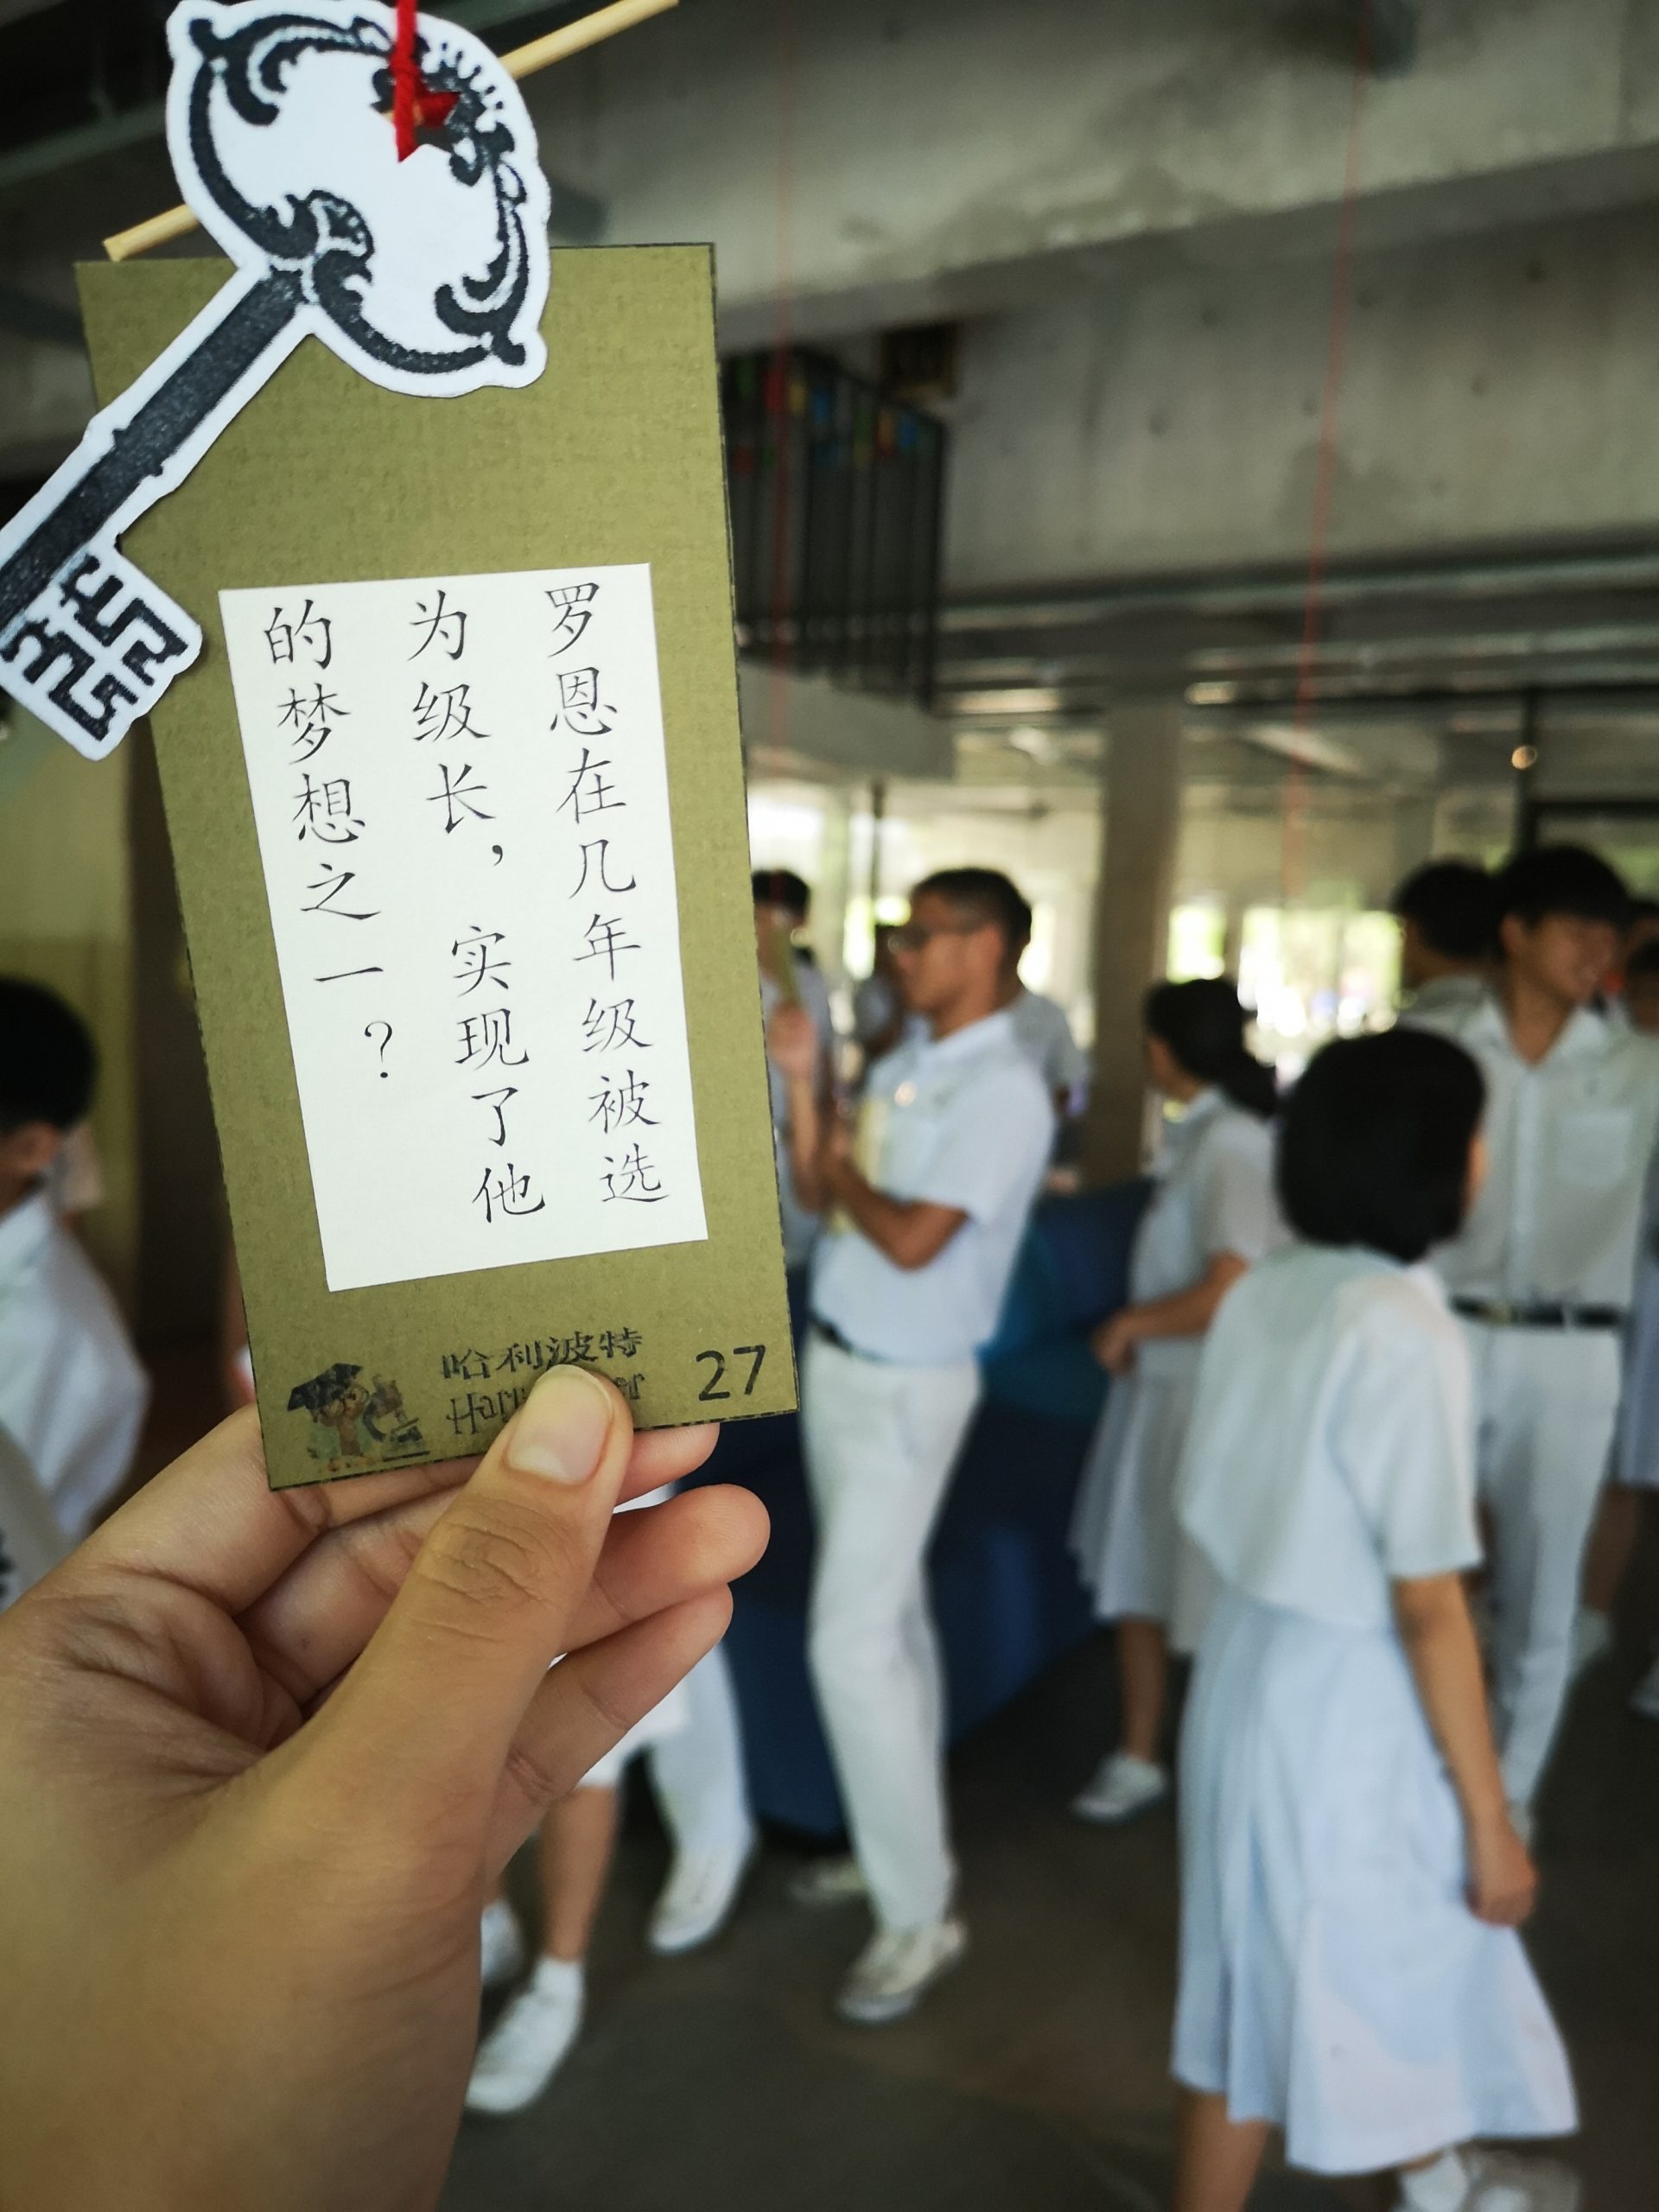 罗恩在几年级被选
为级长，实现了他
的梦想之一？
哈利波特
27